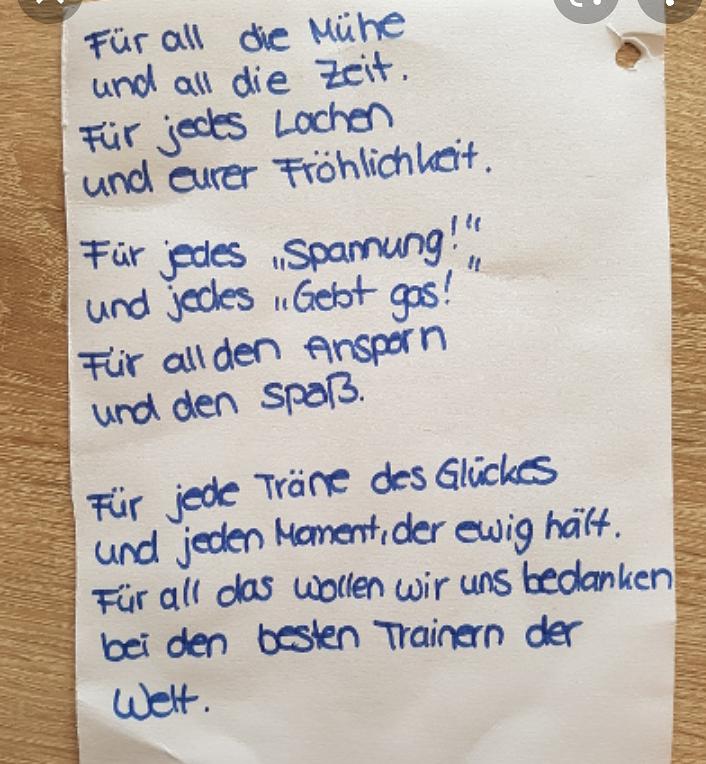 Für all die Mühe
und all die Zeit.
Für jedes Lachen
und eurer Fröhlichkeit.
Für jedes „Spannung!“
und jedes „Gebt gas!“
Für all den Ansporn
und den Spaß.
Für jede Träne des Glückes
und jeden Moment, der ewig hält.
Für all das wollen wir uns bedanken
bei den besten Trainern der
Welt.